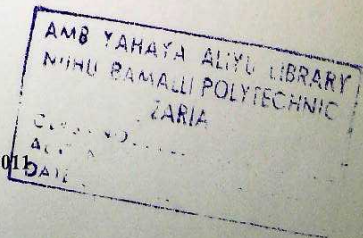 AMB YAHAYA ALIYU LIBRARY
NUHU BAMALLI POLYTECHNIC
ZARIA
011
DATE